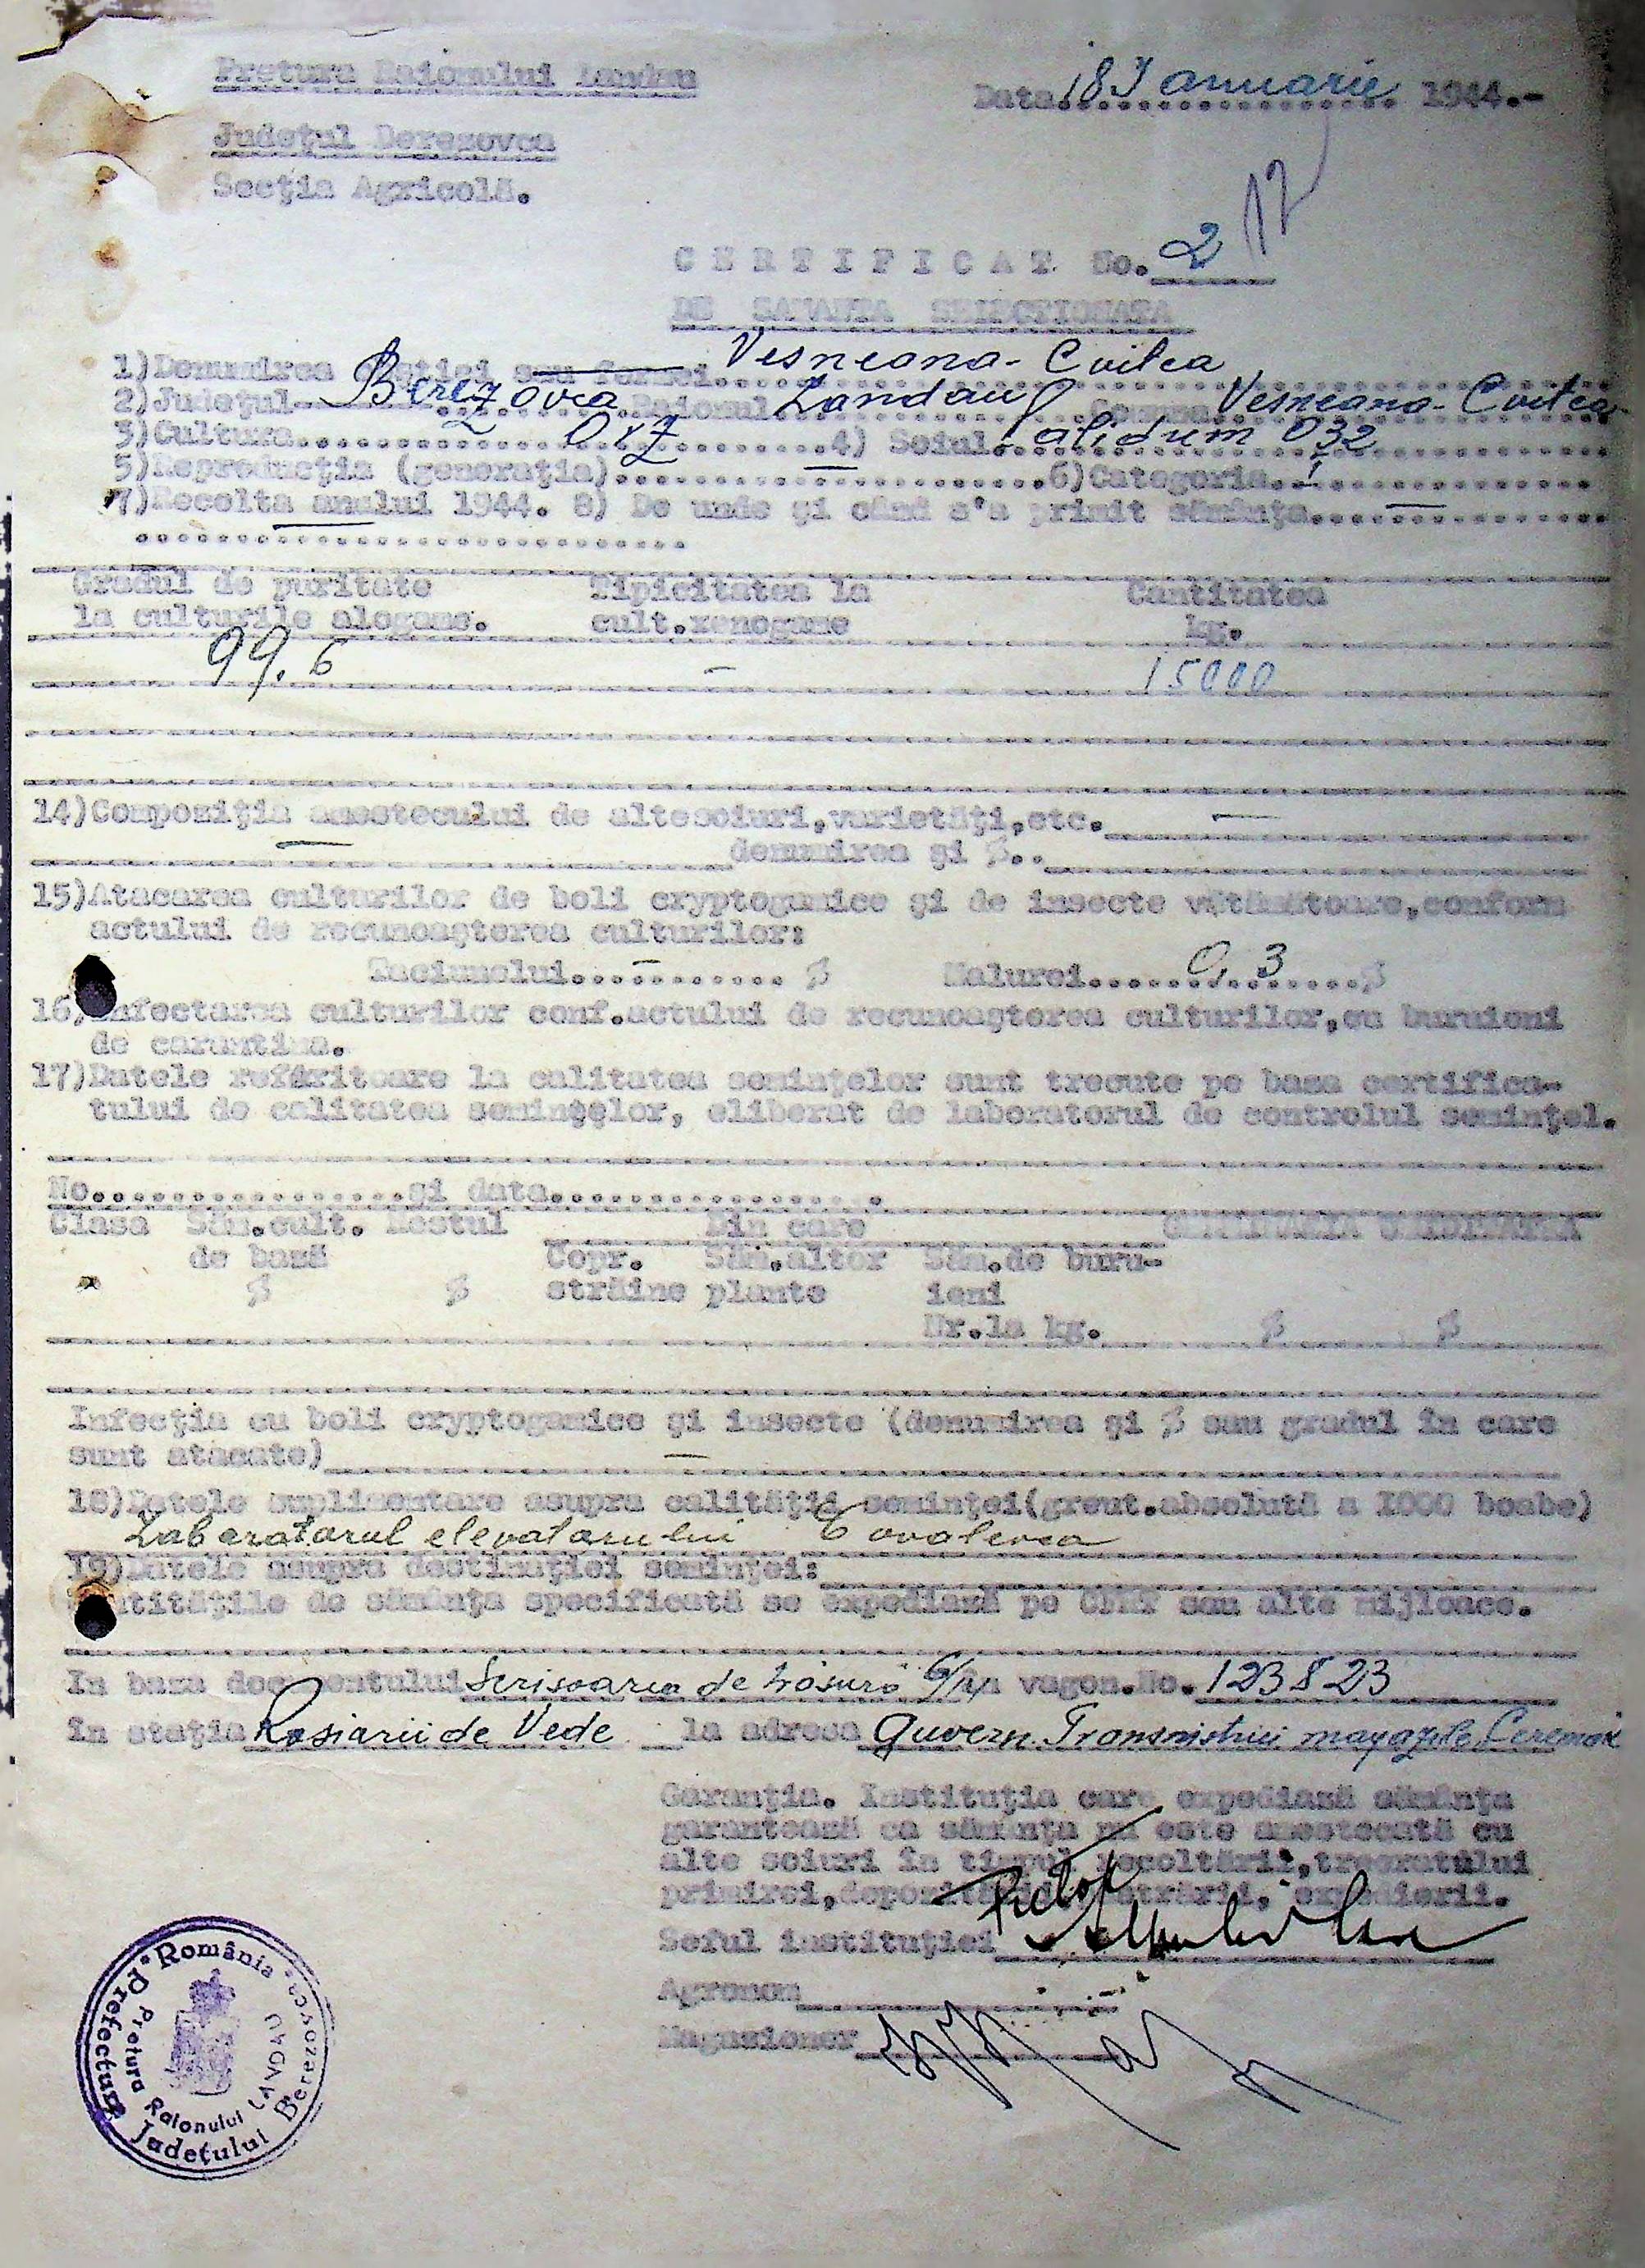 Pretura Raionului Landau
Data 18 Januarie 1944.-
Judeţul Berezovca
Secţia Agricolă.
12
CERTIFICAT No. 2
DE SAMANTA SELECTIONATA
1)Denumirea staţiei sau fermei Vesneana-Cvitca
2)Judeţul Berezovca Raionul Landau Comuna Vesneana-Cvitca
3)Cultura Orz 4) Soiul Palidum 032
5)Reproducţia (generaţia) — 6)Categoria I
7)Recolta anului 1944. 8) De unde şi când s'a primit sămânţa —
Gradul de puritate Tipicitatea la Cantitatea
la culturile alogame. cult.xenogame kg.
99.6 - 15000
14)Compoziţia amestecului de altesoiuri,varietăţi,etc. —
— denumirea şi %..
15)Atacarea culturilor de boli cryptogamice şi de insecte vătămătoare,conform
actului de recunoaşterea culturilor:
Taciunelui - % Malurei 0,3 %
16)Infectarea culturilor conf.actului de recunoaşterea culturilor,cu buruieni
de carantina.
17)Datele referitoare la calitatea seminţelor sunt trecute pe baza certifica-
tului de calitatea seminţelor, eliberat de laboratorul de controlul seminţel.
No. şi data
Clasa Săm.cult. Restul Din care
de bază Copr. Săm.altor Săm.de buru-
% % străine plante ieni
Nr.la kg. % %
Infecţia cu boli cryptogamice şi insecte (denumirea şi % sau gradul în care
sunt atacate) —
18)Datele suplimentare asupra calităţii seminţei(greut.absolută a 1000 boabe)
Laboratorul elevatorului Covalevca
19)Datele asupra destinaţiei seminţei:
Cantităţile de sămânţa specificată se expediază pe CFRT sau alte mijloace.
In baza documentului Scrisoarea de trăsură în vagon.No. 123823
în staţia Rosiarii de Vede la adresa Guvern. Transnistriei
Garanţia. Instituţia care expediază sămânţa
garantează ca sămânţa nu este amestecată cu
alte soiuri în timpul recoltării,treeratului
primirei,depozitării, expedierii.
Pretor
Seful instituţiei
Agronom
Magazioner
România
Prefectura Judeţului Berezovca
Pretura Raionului LANDAU